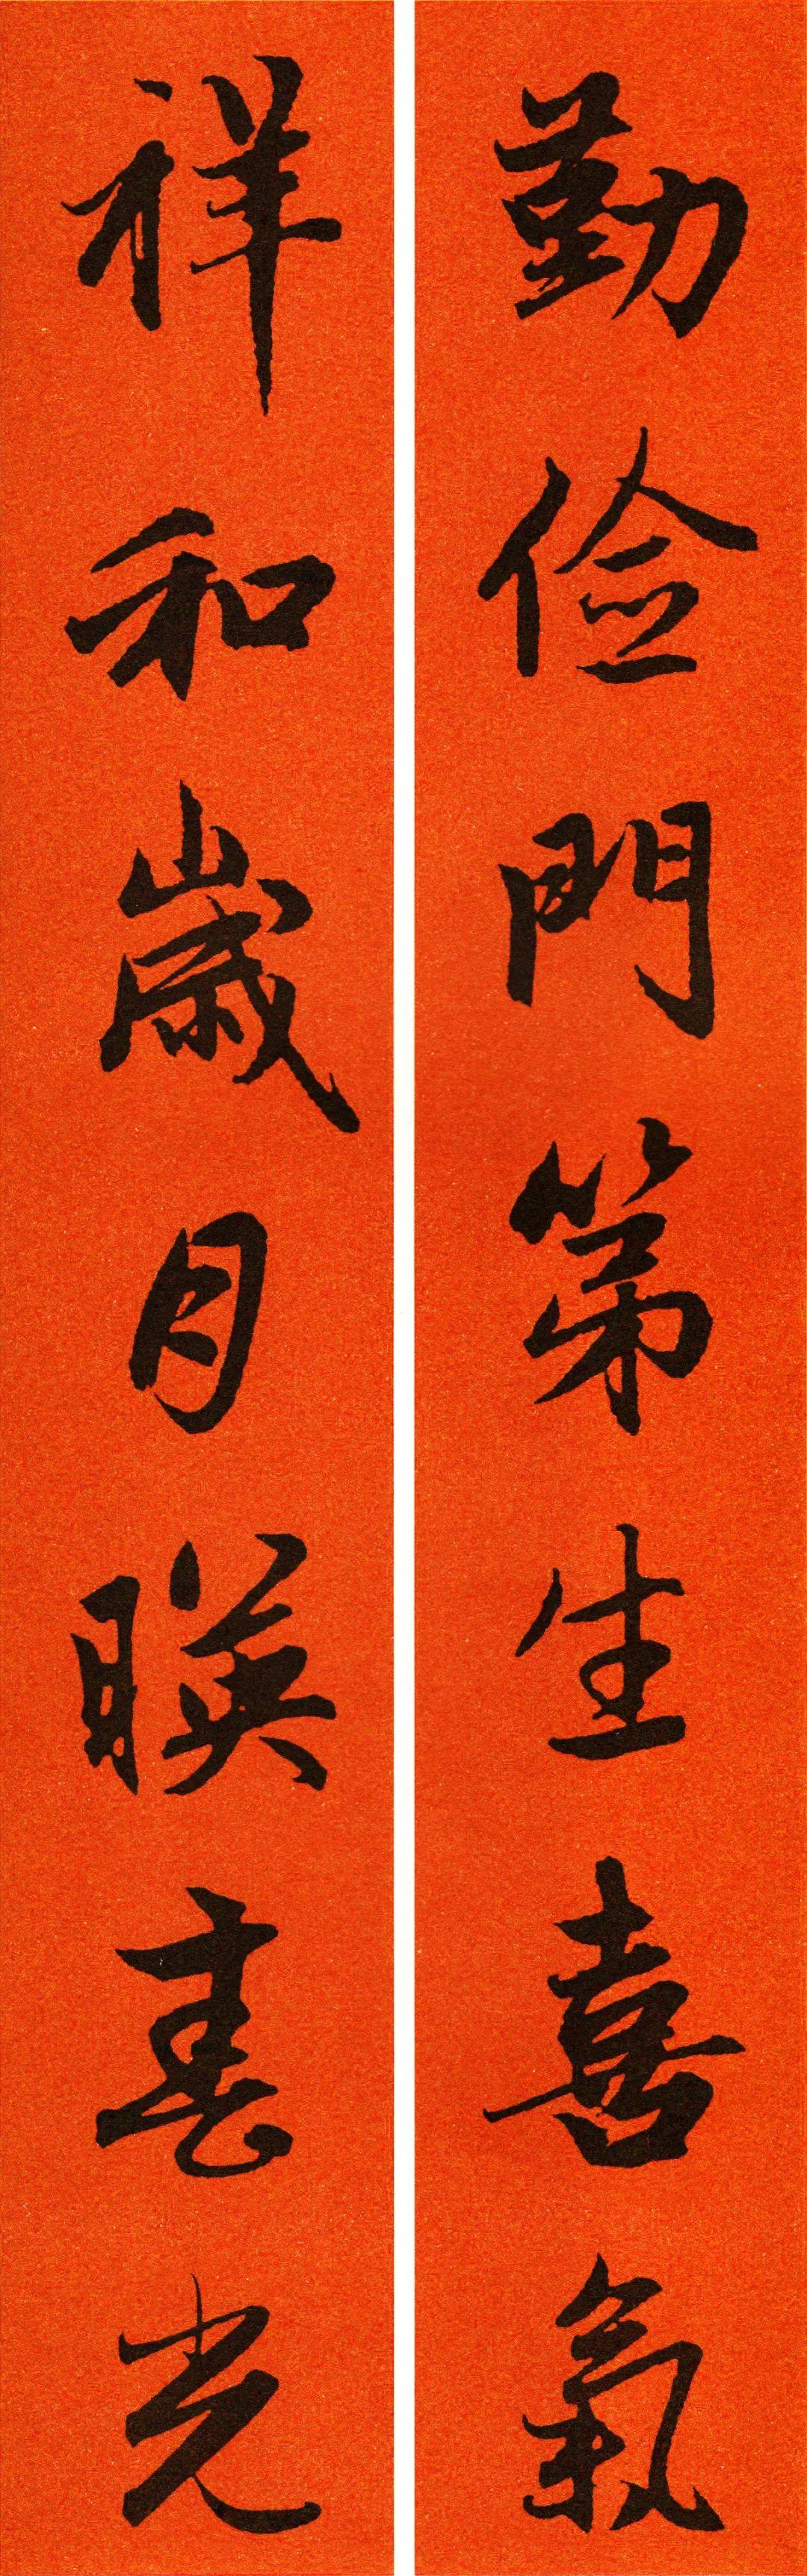 勤儉門第生喜氣
祥和歲月暎春光